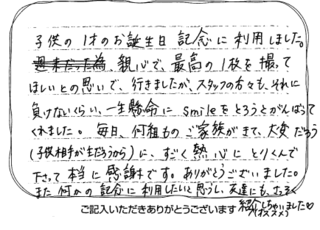 子供の1才のお誕生日 記念に利用しました。
親心で、最高の1枚を撮って
ほしいとの思いで、行きましたが、スタッフの方々が、それに
負けないくらい、一生懸命に smileをとろうとがんばって
くれました。毎日、何組ものご家族がきて、大変だろう
(子供相手が主だろうから)に、すごく熱心にとりくんで
下さって本当に感謝です。ありがとうございました。
また何かの記念に利用したいと思うし、友達にも、
紹介しちゃいました♡
ご記入いただきありがとうございます